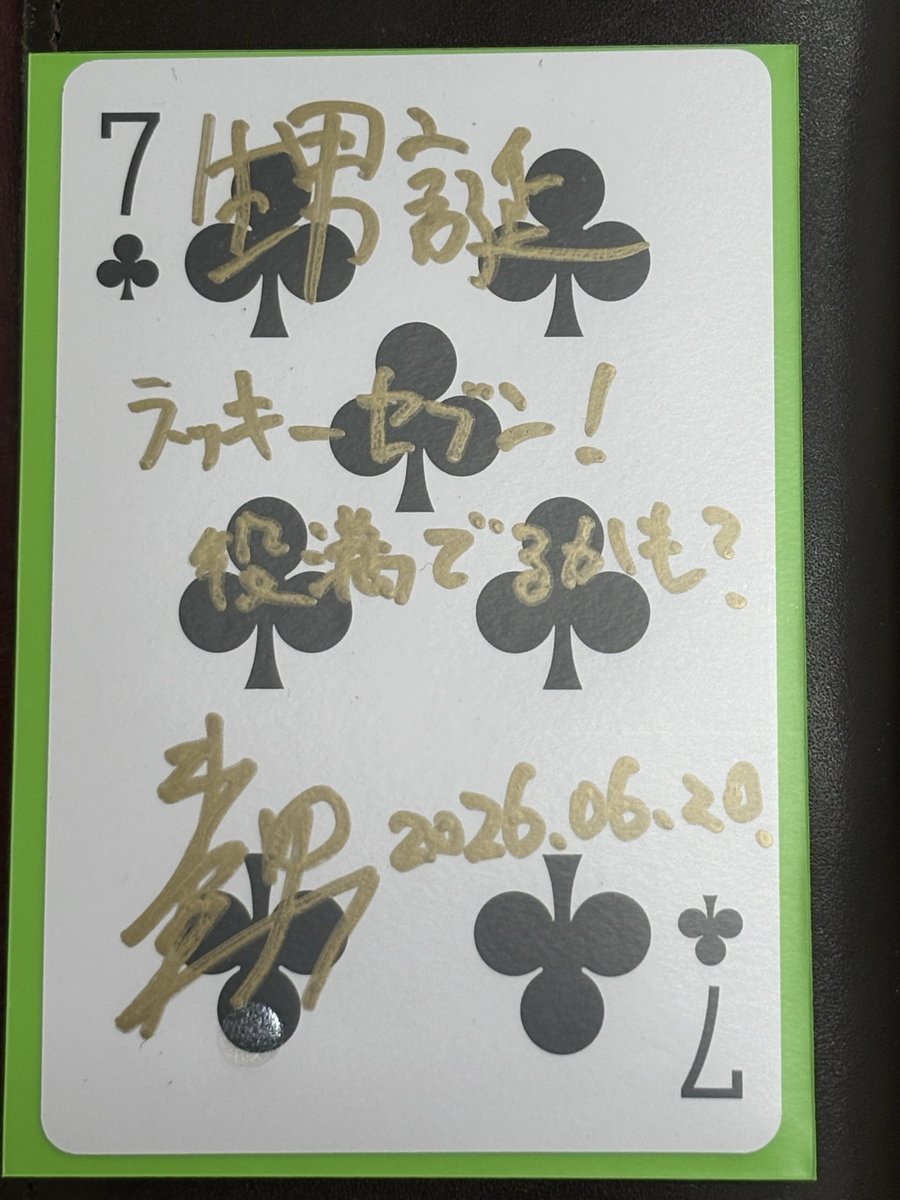 7
甥誕
ラッキーセブン!
役満でるかも?
2026.06.20.
7